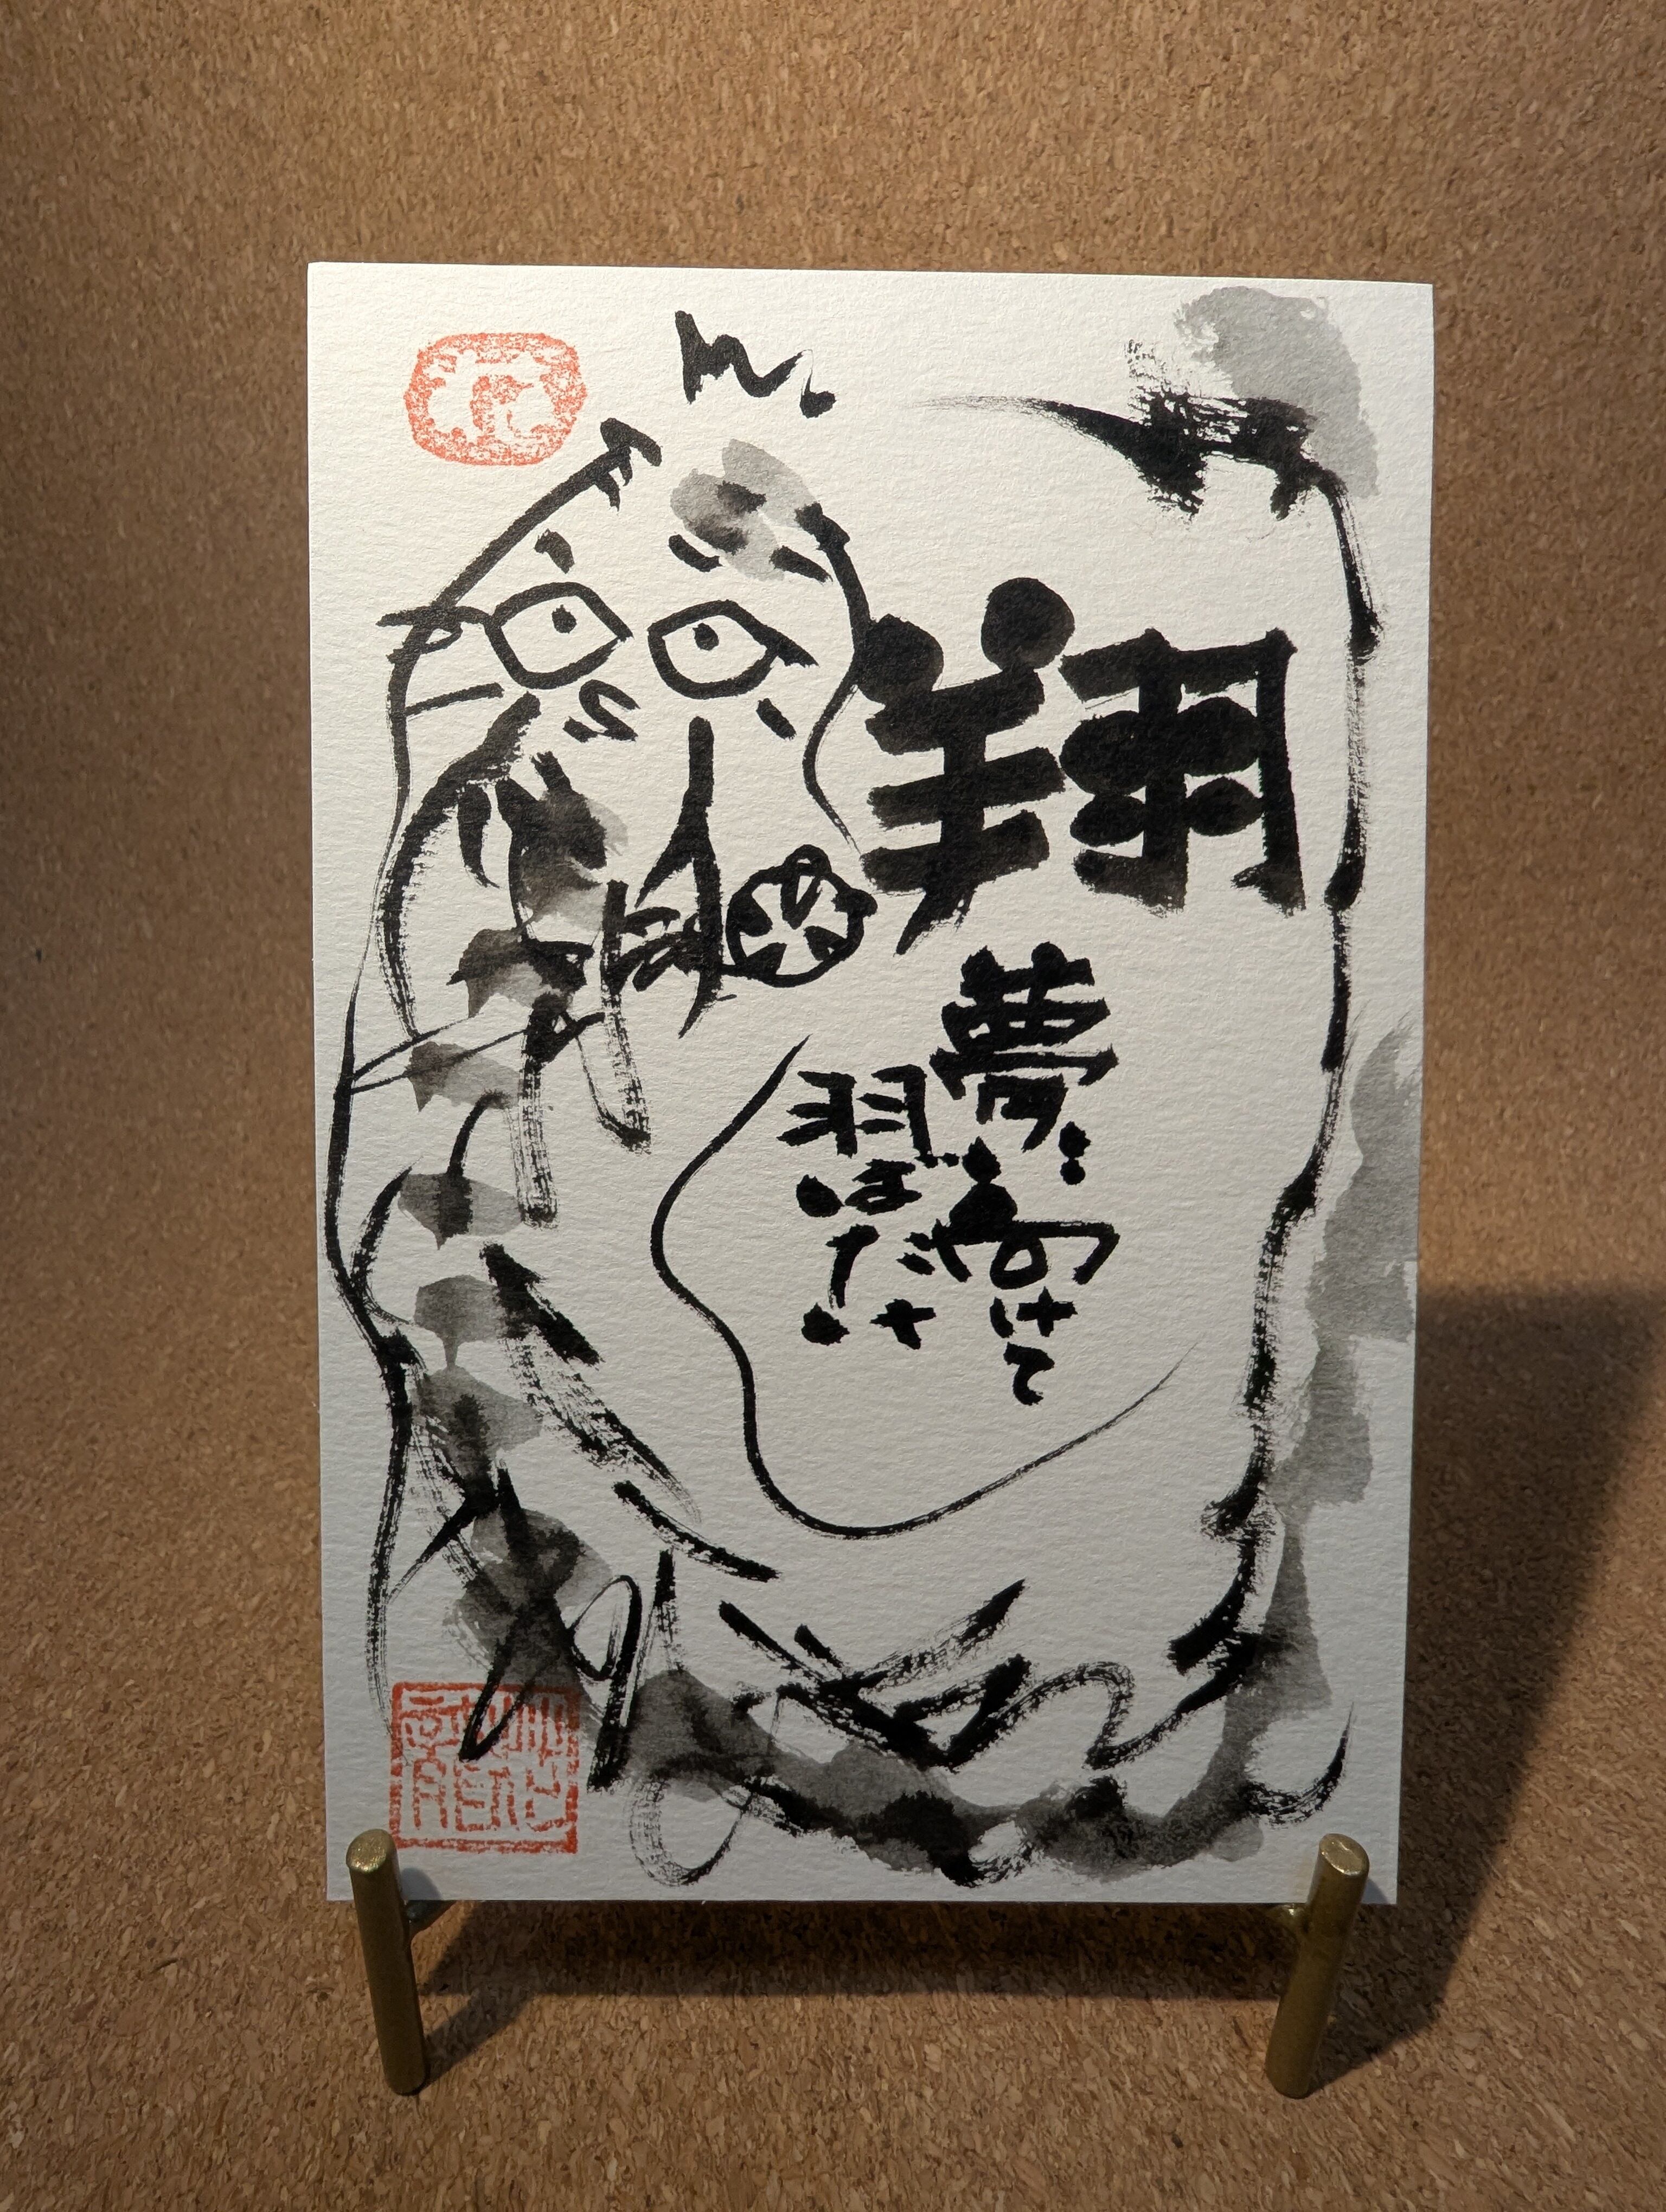 翔
夢に向けて
羽ばたけ